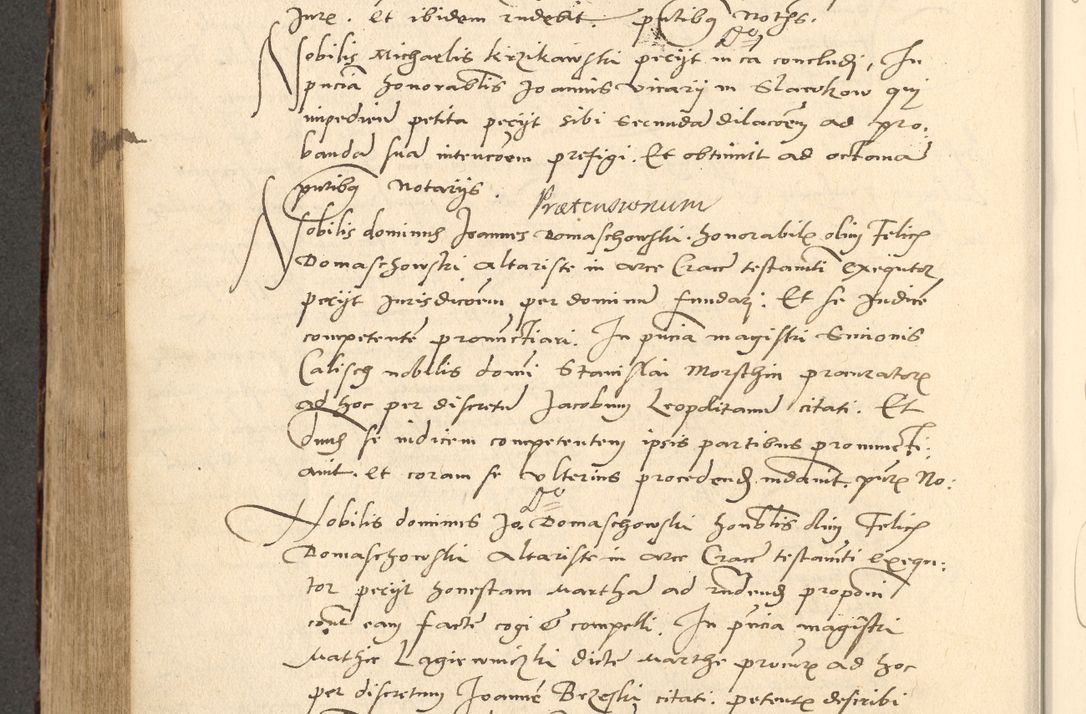 Jure. Et ibidem indebit. pntibq Notijs.
Nobilis Michaelis Krzikawski pecijt in ca concludj, In
pncia honorabilis Joannis vicarij in Slawkow qui
impedien petita pecijt sibi secunda dilacoem ad pro:
banda sua intencoem prefigi. Et obtinuit ad octama
pntibq Notarijs.
Prætensionum
Nobilis dominus Joannes Domaschowski. honorabilx olim Felicx
Domaschowski altariste in arce Crace testamti exequtor
pecijt Jurisdicoem per dominu fundarj. Et se Judice
competente pronunctiari. In pncia magistri Simonis
Calisch nobilis domi Stanislai Morsthin procuratorx
ad hoc per discretu Jacobum Leopolitanu citati. Et
dnus se iudicem competentem ipsis partibus pronuncti:
avit. Et coram se vlterius procedend mdavit. pntx No:
Nobilis dominus Jo. Domaschowski honblis olim Felicx
Domaschowski altariste in arce Crace testamti exequ:
tor pecijt honestam Martha ad rndend proponi
contr eam facte cogi & compelli. In pncia magistri
Mathie Lagiewniczki dicte Marthe procurx ad hoc
per discretum Joanne Brzeski citati. petentx describi